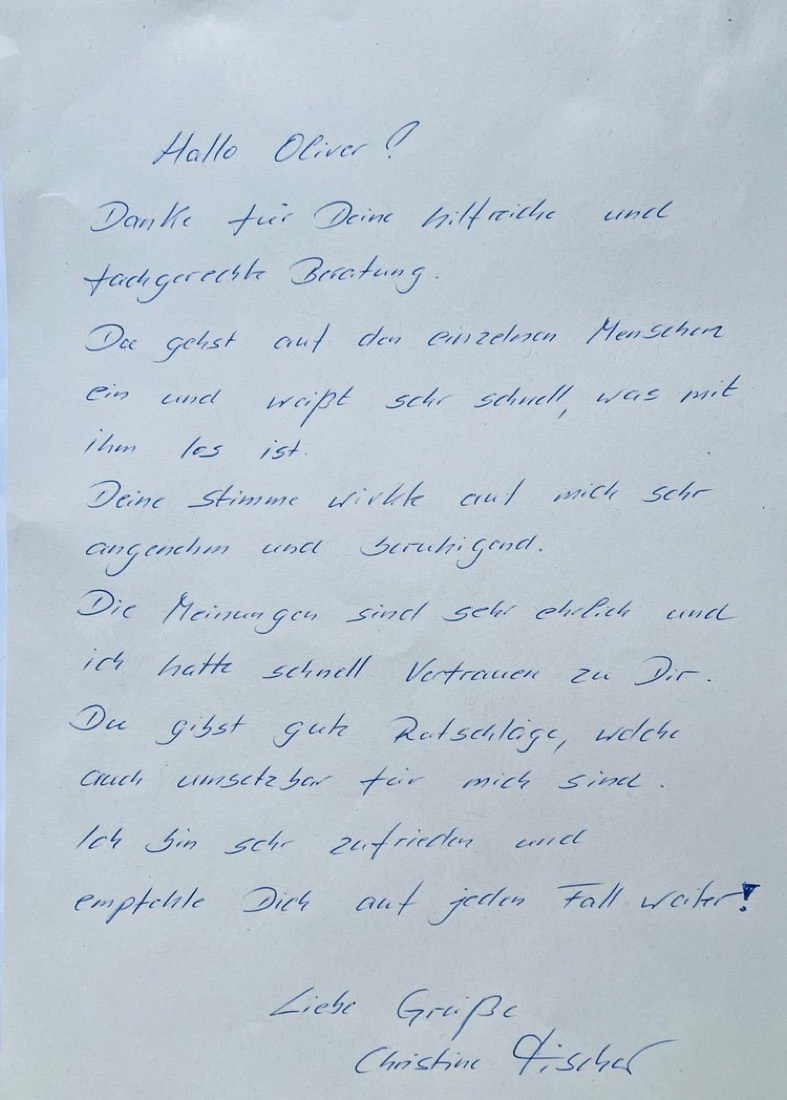 Hallo Oliver!
Danke für Deine hilfreiche und
fachgerechte Beratung.
Du gehst auf den einzelnen Menschen
ein und weißt sehr schnell, was mit
ihm los ist.
Deine Stimme wirkte auf mich sehr
angenehm und beruhigend.
Die Meinungen sind sehr ehrlich und
ich hatte schnell Vertrauen zu Dir.
Du gibst gute Ratschläge, welche
auch umsetzbar für mich sind.
Ich bin sehr zufrieden und
empfehle Dich auf jeden Fall weiter!
Liebe Grüße
Christine Fischer